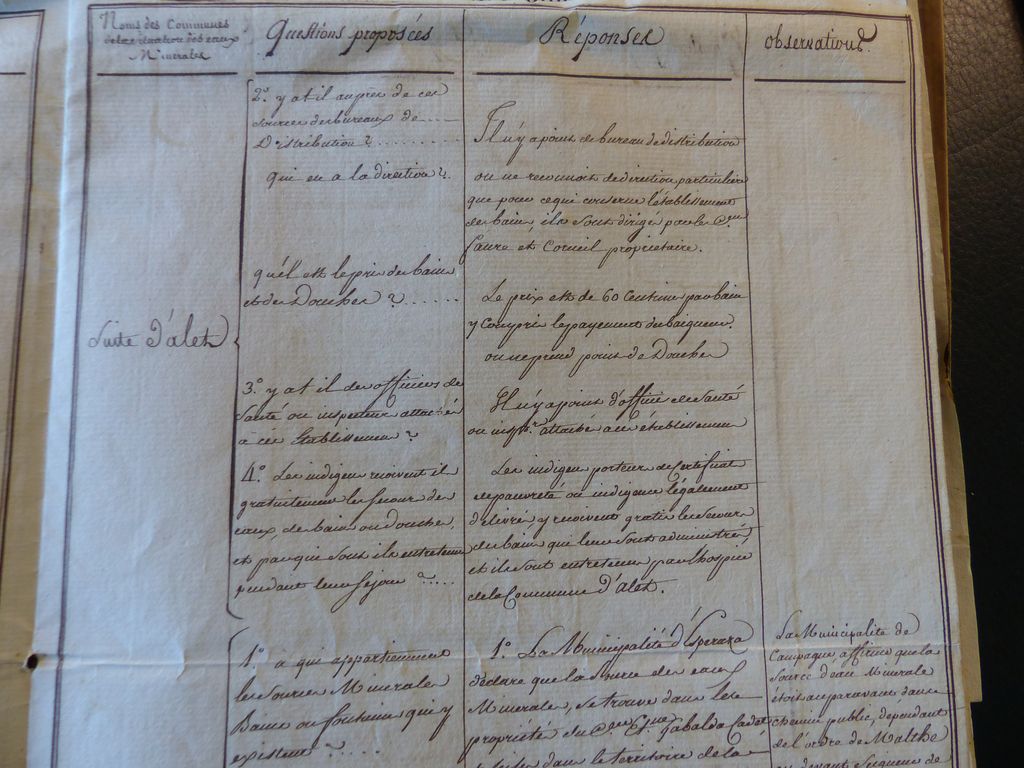 Noms des Communes
de la situation des eaux
Minerales
Questions proposées
Réponses
observations.
Suite d'alet
2.° y at il auprès de ces
sources des bureaux de ....
Distribution ? .........
qui en a la direction ?..
quel est le prix des bains
et des Douches ? ......
3.° y at il des officiers de
Santé ou inspecteur attachés
à ces Etablissemens ?
4.° Les indigens reçoivent ils
gratuitement les secours des
eaux, des bains ou douches,
et par qui sont ils entretenus
pendant leur sejour ? ....
Il n'y a point de bureau de distribution
on ne reconnoit de direction particuliere
que pour ce qui concerne l'établissement
des bains, ils sont dirigés par les C.ens
faure et Corneil proprietaires.
Le prix est de 60 centimes par bain
y compris le payement du baigneur.
on ne prend point de Douches
Il n'y a point d'officier de Santé
ou insp.r attaché a cet établissement
Les indigens porteurs de Certificats
de pauvreté ou indigence légalement
délivrés y reçoivent gratis les secours
des bains qui leur sont administrés,
et ils sont entretenus par l'hospice
de la Commune d'Alet.
1.° a qui appartiennent
les sources Minerales
Bains ou fontaines qui y
existent ? .....
1.° La Municipalité d'Esperaza
déclare que la source des eaux
Minerales, se trouve dans les
propriétés du C.en Gabalda Cadet
dans le territoire de la
La Municipalité de
Campagne affirme que la
source d'eau Minerale
étoit auparavant dans le
chemin public, dépendant
de l'ordre de Malthe
ci devant Seigneur de